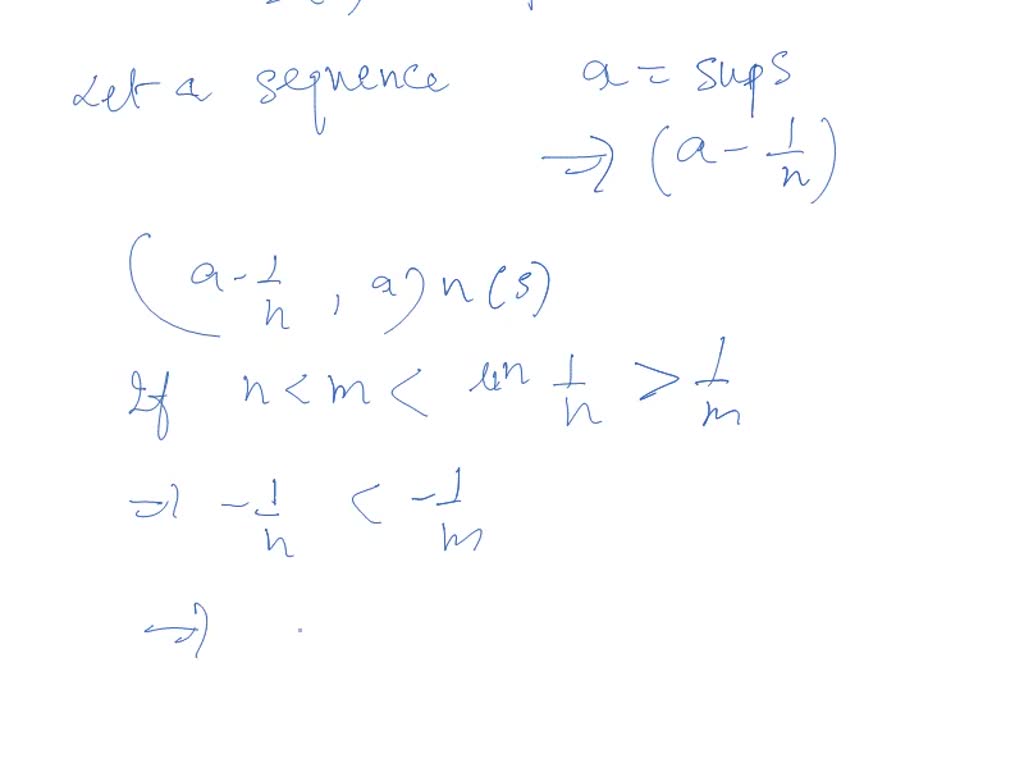 Let a sequence a = sup s
⇒ (a - 1/n)
(a - 1/n, a) n (s)
If n < m < 1/n > 1/m
⇒ -1/n < -1/m
⇒